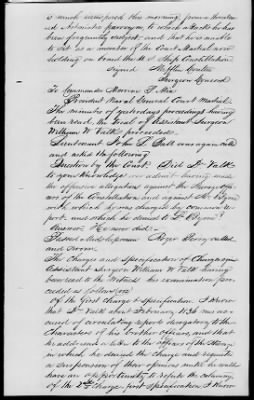 is much indisposed this morning from a threatened
Asthmatic paroxysm, to which attacks he has
been frequently subject, and that he is unable
to sit as a member of the Court Martial now
holding on board the U. S. Ship Constellation
Signed Mifflin Coulter
Surgeon Concord
To Commander
President Naval General Court Martial.
The minutes of yesterdays proceedings having
been read, the trial of Assistant Surgeon
William W. Valk proceeded.
Lieutenant John T. Ball was again called
and asked the following
Question by the Court: Did Dr. Valk
to your knowledge ever admit having made
the offensive allegations against the
of the Constellation and against
with which he was charged by
port, and which he denied to
Answer: He never did.
Passed Midshipman Roger Perry called
and sworn.
The Charges and Specifications of Charges against
Assistant Surgeon William W. Valk having
been read to the Witness his examination proceeded
as follows
Of the first charge & Specification, I know
that Dr. Valk about February 1836 was accused
of circulating reports derogatory to the
Characters of his brother Officers, and that
he addressed a letter to the officers of the Steerage
in which he denied the Charge and requested
a suspension of their opinions until he could
have an opportunity to refute the calumny
Of the 2nd Charge first Specification, I know